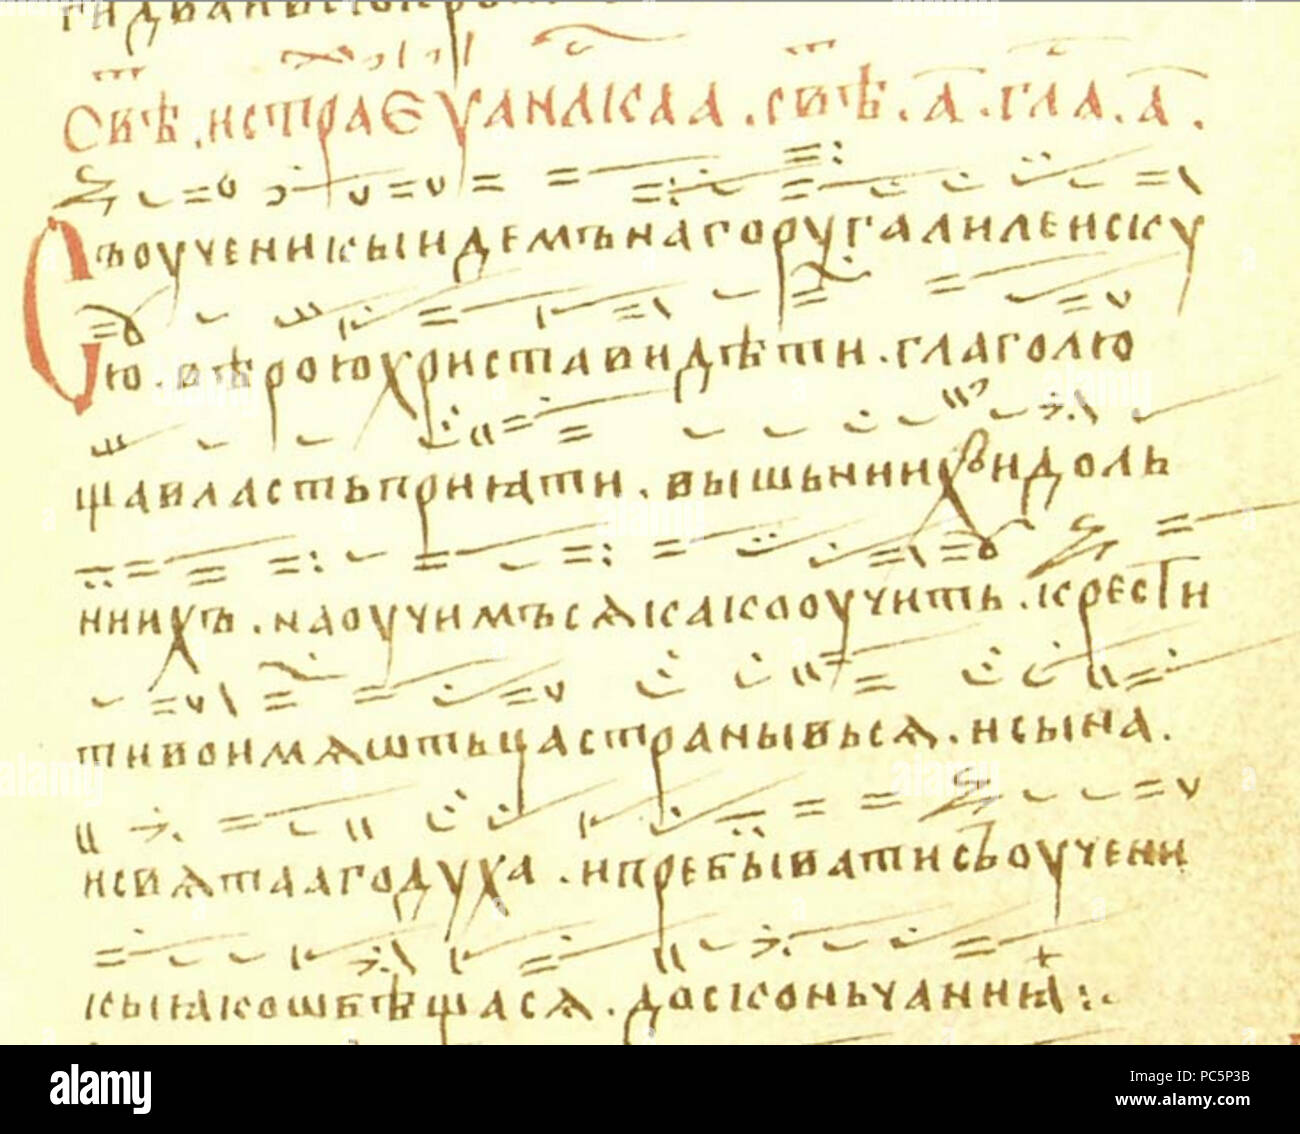 свѣ . и страеуаньскаа . свѣ . а . гла . а .
Съ оученикы идемъ на гору галиленску
ю . вѣрою христа видѣти . глаголю
ща власть приꙗти . вышьниихъ и доль
ниихъ . наоучимъсѧ како оучить . крести
ти во имѧ штьца страны вьсѧ . и сына .
и свѧтааго духа . и пребывати съ оучени
кы ꙗко шбѣщасѧ . до сконьчаниꙗ :.
alamy
Image ID: PC5P3B
www.alamy.com